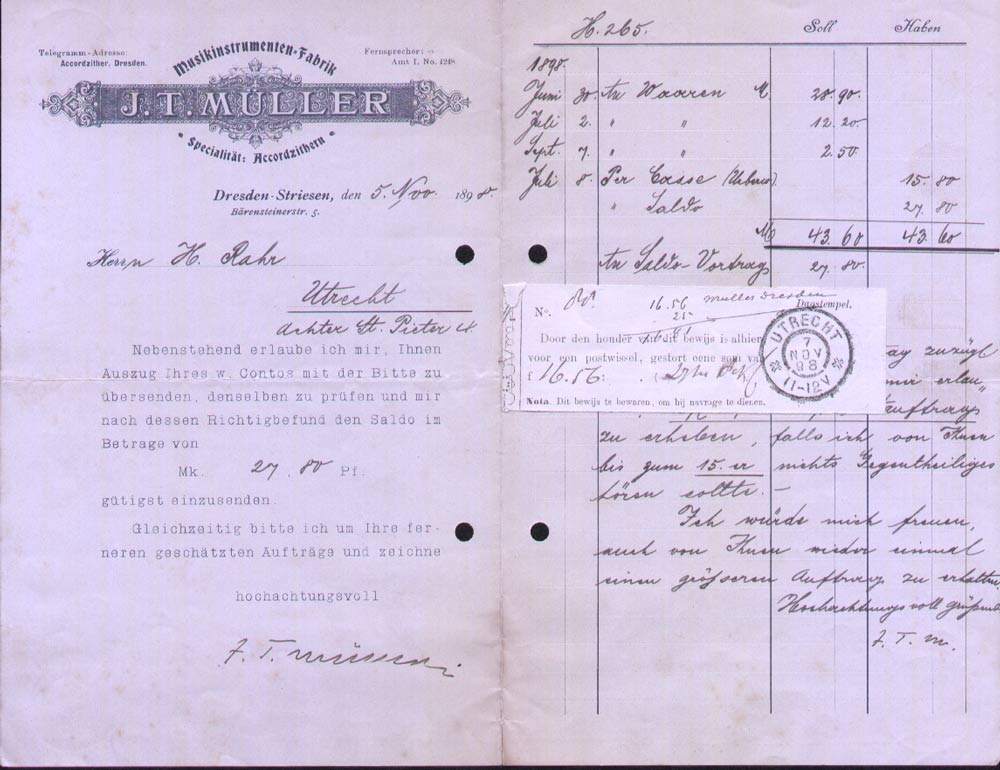 Telegramm-Adresse:
Accordzither, Dresden.
Fernsprecher:
Amt I. No. 4248.
Musikinstrumenten-Fabrik
J. T. MÜLLER
Specialität: Accordzithern
Dresden-Striesen, den 5. Nov. 1898.
Bärensteinerstr. 5.
Herrn H. Rahr
Utrecht
Achter St. Pieter 4
Nebenstehend erlaube ich mir, Ihnen
Auszug Ihres w. Contos mit der Bitte zu
übersenden, denselben zu prüfen und mir
nach dessen Richtigbefund den Saldo im
Betrage von
Mk. 27.80 Pf.
gütigst einzusenden.
Gleichzeitig bitte ich um Ihre fer-
neren geschätzten Aufträge und zeichne
hochachtungsvoll
J. T. Müller
H. 265. Soll Haben
1898.
Juni 30. An Waaren M. 28.90.
Juli 2. " " 12.20.
Sept. 7. " " 2.50.
Juli 8. Per Casse 15.80
" Saldo 27.80
M 43.60 43.60
An Saldo-Vortrag 27.80.
No. 16.56 Muller Dresden
25
Dagstempel.
Door den houder van dit bewijs is alhier
voor een postwissel, gestort eene som van
f 16.56:
Nota. Dit bewijs te bewaren, om bij navrage te dienen.
UTRECHT
7
NOV
98
11-12V
zuzügl
mir erlau"
auftrag
zu erheben, falls ich von Ihnen
bis zum 15. er nichts Gegentheiliges
hören sollte. —
Ich würde mich freuen,
auch von Ihnen wieder einmal
einen größeren Auftrag zu erhalten.
Hochachtungsvoll
J. T. M.